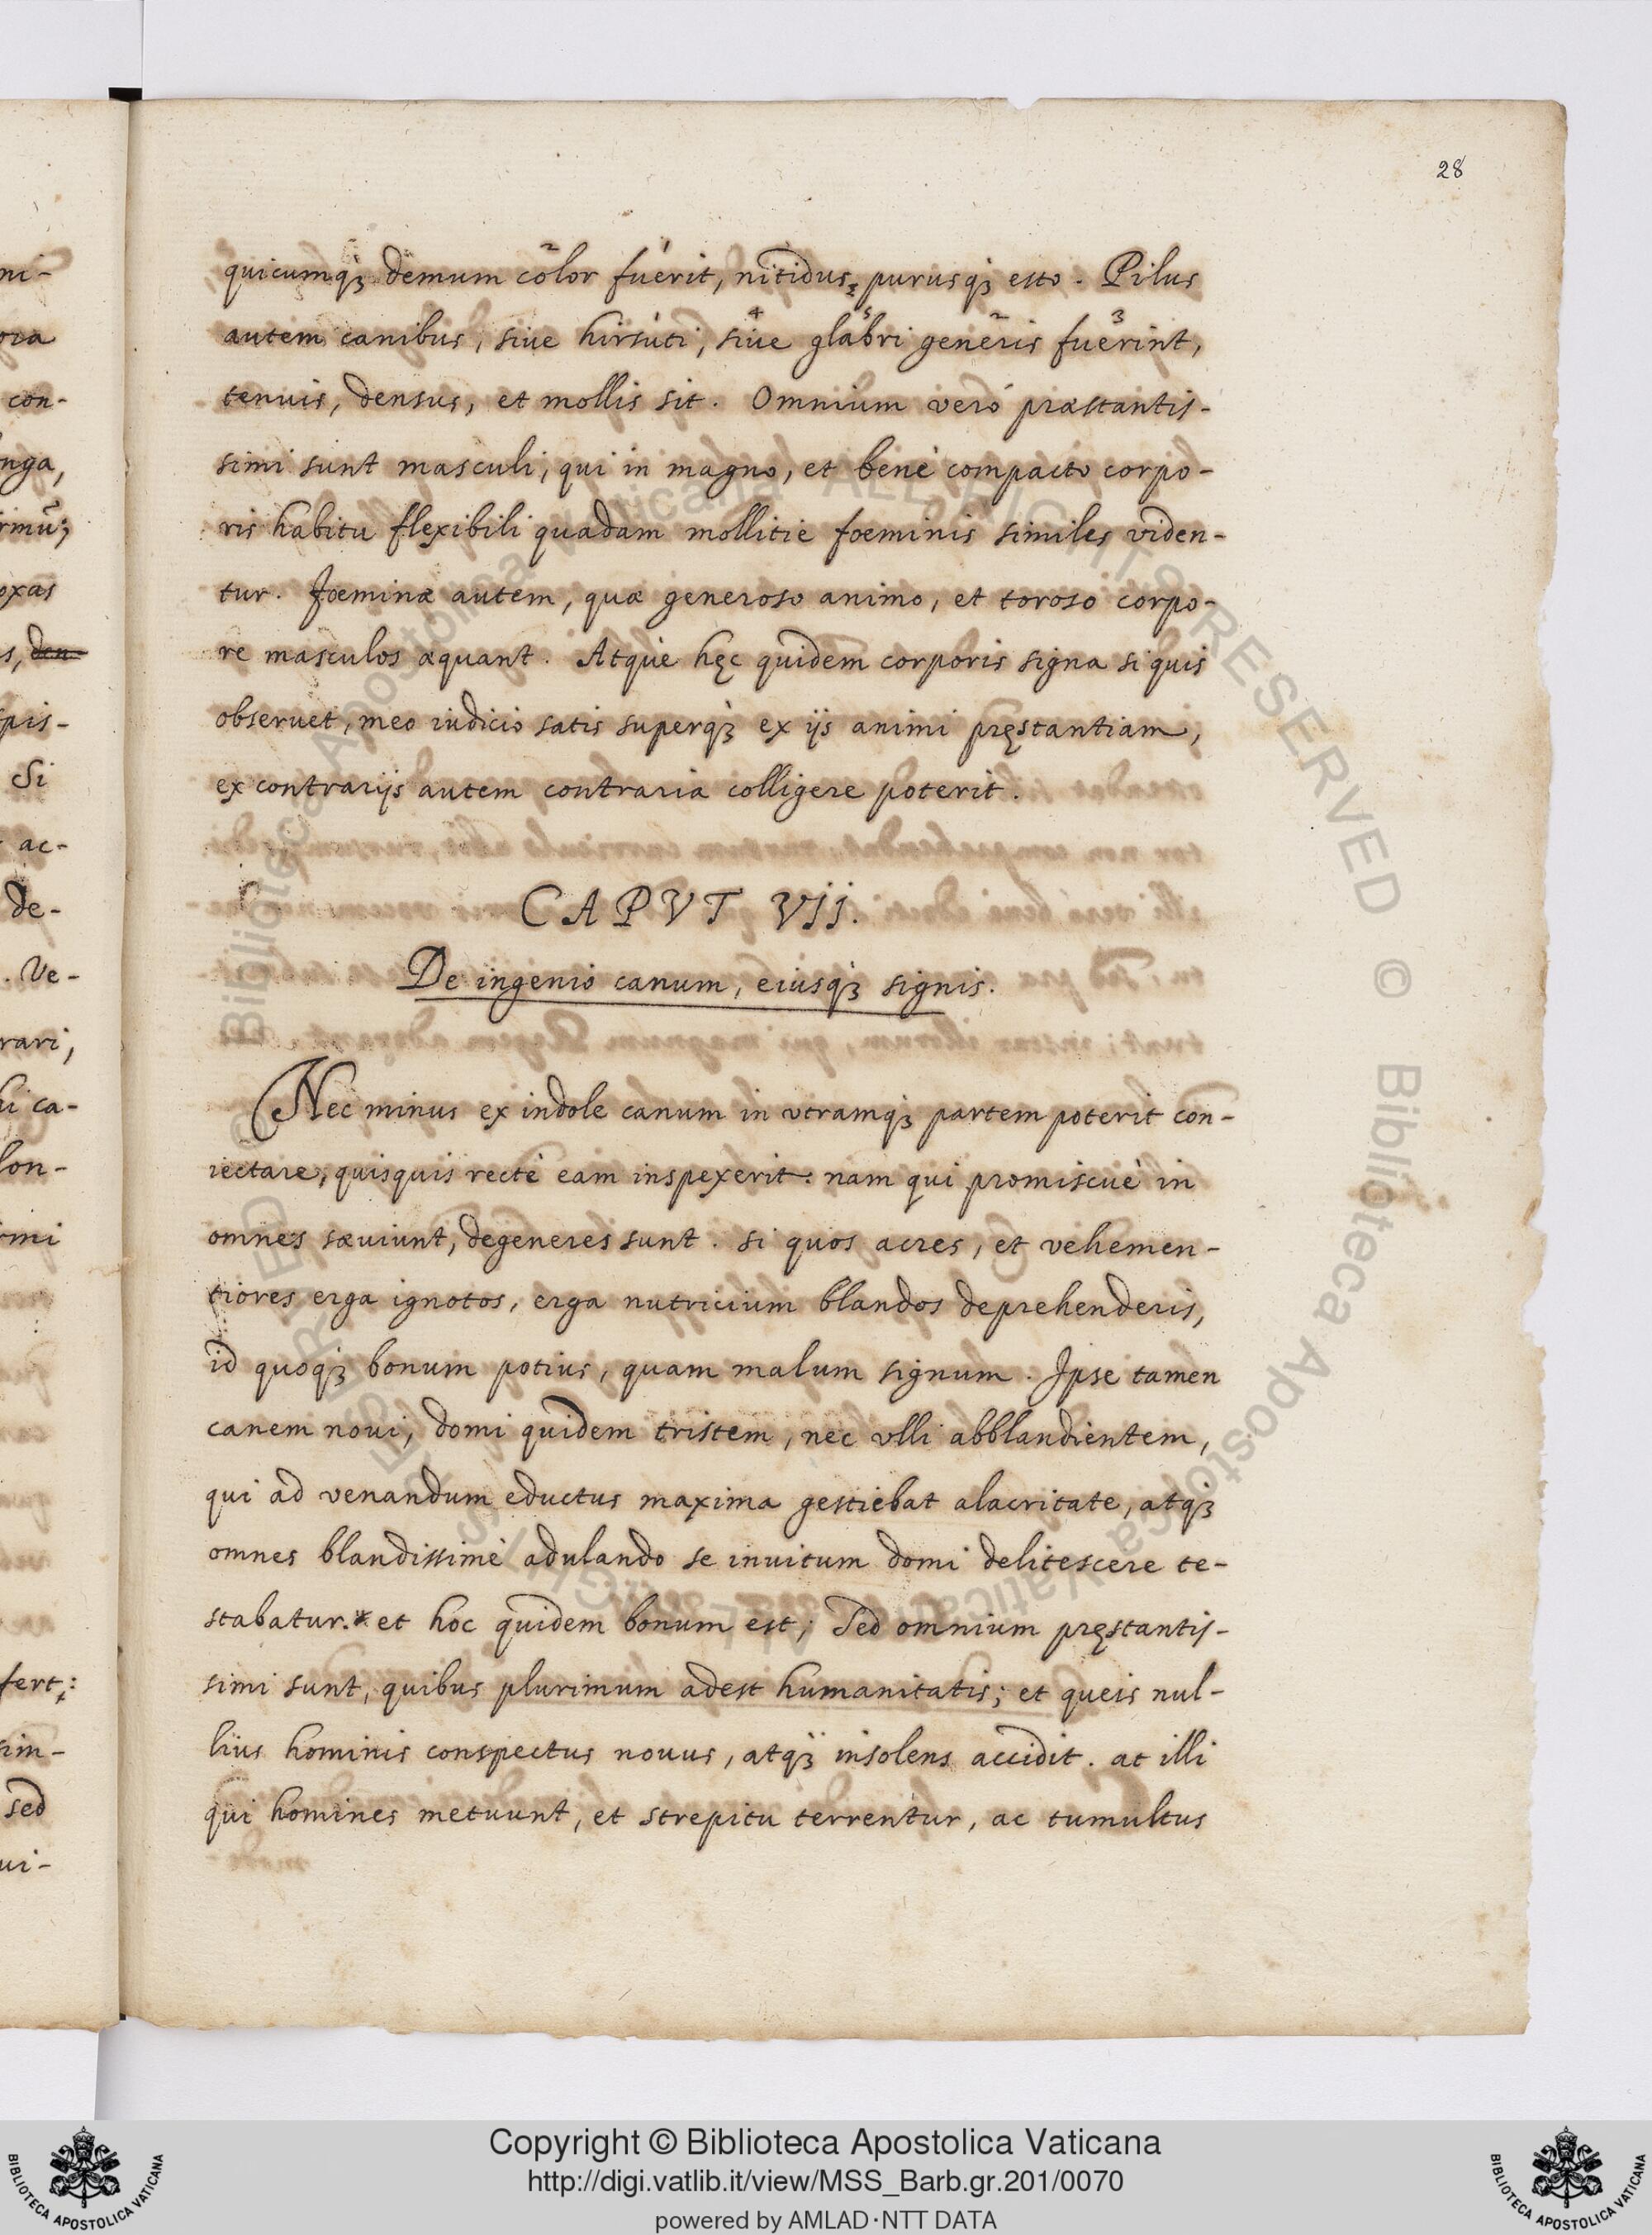 28
quicumq́ꝫ demum color fuerit, nitidus, purusq́ꝫ esto. Pilus
autem canibus, siue hirsuti, siue glabri generis fuerint,
tenuis, densus, et mollis sit. Omnium verò præstantis-
simi sunt masculi, qui in magno, et benè compacto corpo-
ris habitu flexibili quadam mollitie foeminis similes viden-
tur. Foeminæ autem, quæ generoso animo, et toroso corpo-
re masculos æquant. Atque hęc quidem corporis signa si quis
obseruet, meo iudicio satis superq́ꝫ ex ijs animi pręstantiam,
ex contrarijs autem contraria colligere poterit.
CAPVT VII.
De ingenio canum, eiusq́ꝫ signis.
Nec minus ex indole canum in vtramq́ꝫ partem poterit con-
iectare, quisquis rectè eam inspexerit: nam qui promiscuè in
omnes sæuiunt, degeneres sunt. si quos acres, et vehemen-
tiores erga ignotos, erga nutricium blandos deprehenderis,
id quoq́ꝫ bonum potius, quam malum signum. Ipse tamen
canem noui, domi quidem tristem, nec vlli abblandientem,
qui ad venandum eductus maxima gestiebat alacritate, atq́ꝫ
omnes blandissimè adulando se inuitum domi delitescere te-
stabatur.* et hoc quidem bonum est; Sed omnium pręstantis-
simi sunt, quibus plurimum adest humanitatis; et queis nul-
lius hominis conspectus nouus, atq́ꝫ insolens accidit. at illi
qui homines metuunt, et strepitu terrentur, ac tumultus
ni-
con-
nga,
oxas
s, den
spis-
Si
ac-
de-
. Ve-
rari,
ui ca-
lon-
rmi
fert:
sim-
sed
ui-
Biblioteca Apostolica Vaticana ALL RIGHTS RESERVED © Biblioteca Apostolica Vaticana ALL RIGHTS RESERVED ©
Copyright © Biblioteca Apostolica Vaticana
http://digi.vatlib.it/view/MSS_Barb.gr.201/0070
powered by AMLAD·NTT DATA
BIBLIOTECA APOSTOLICA VATICANA
BIBLIOTECA APOSTOLICA VATICANA